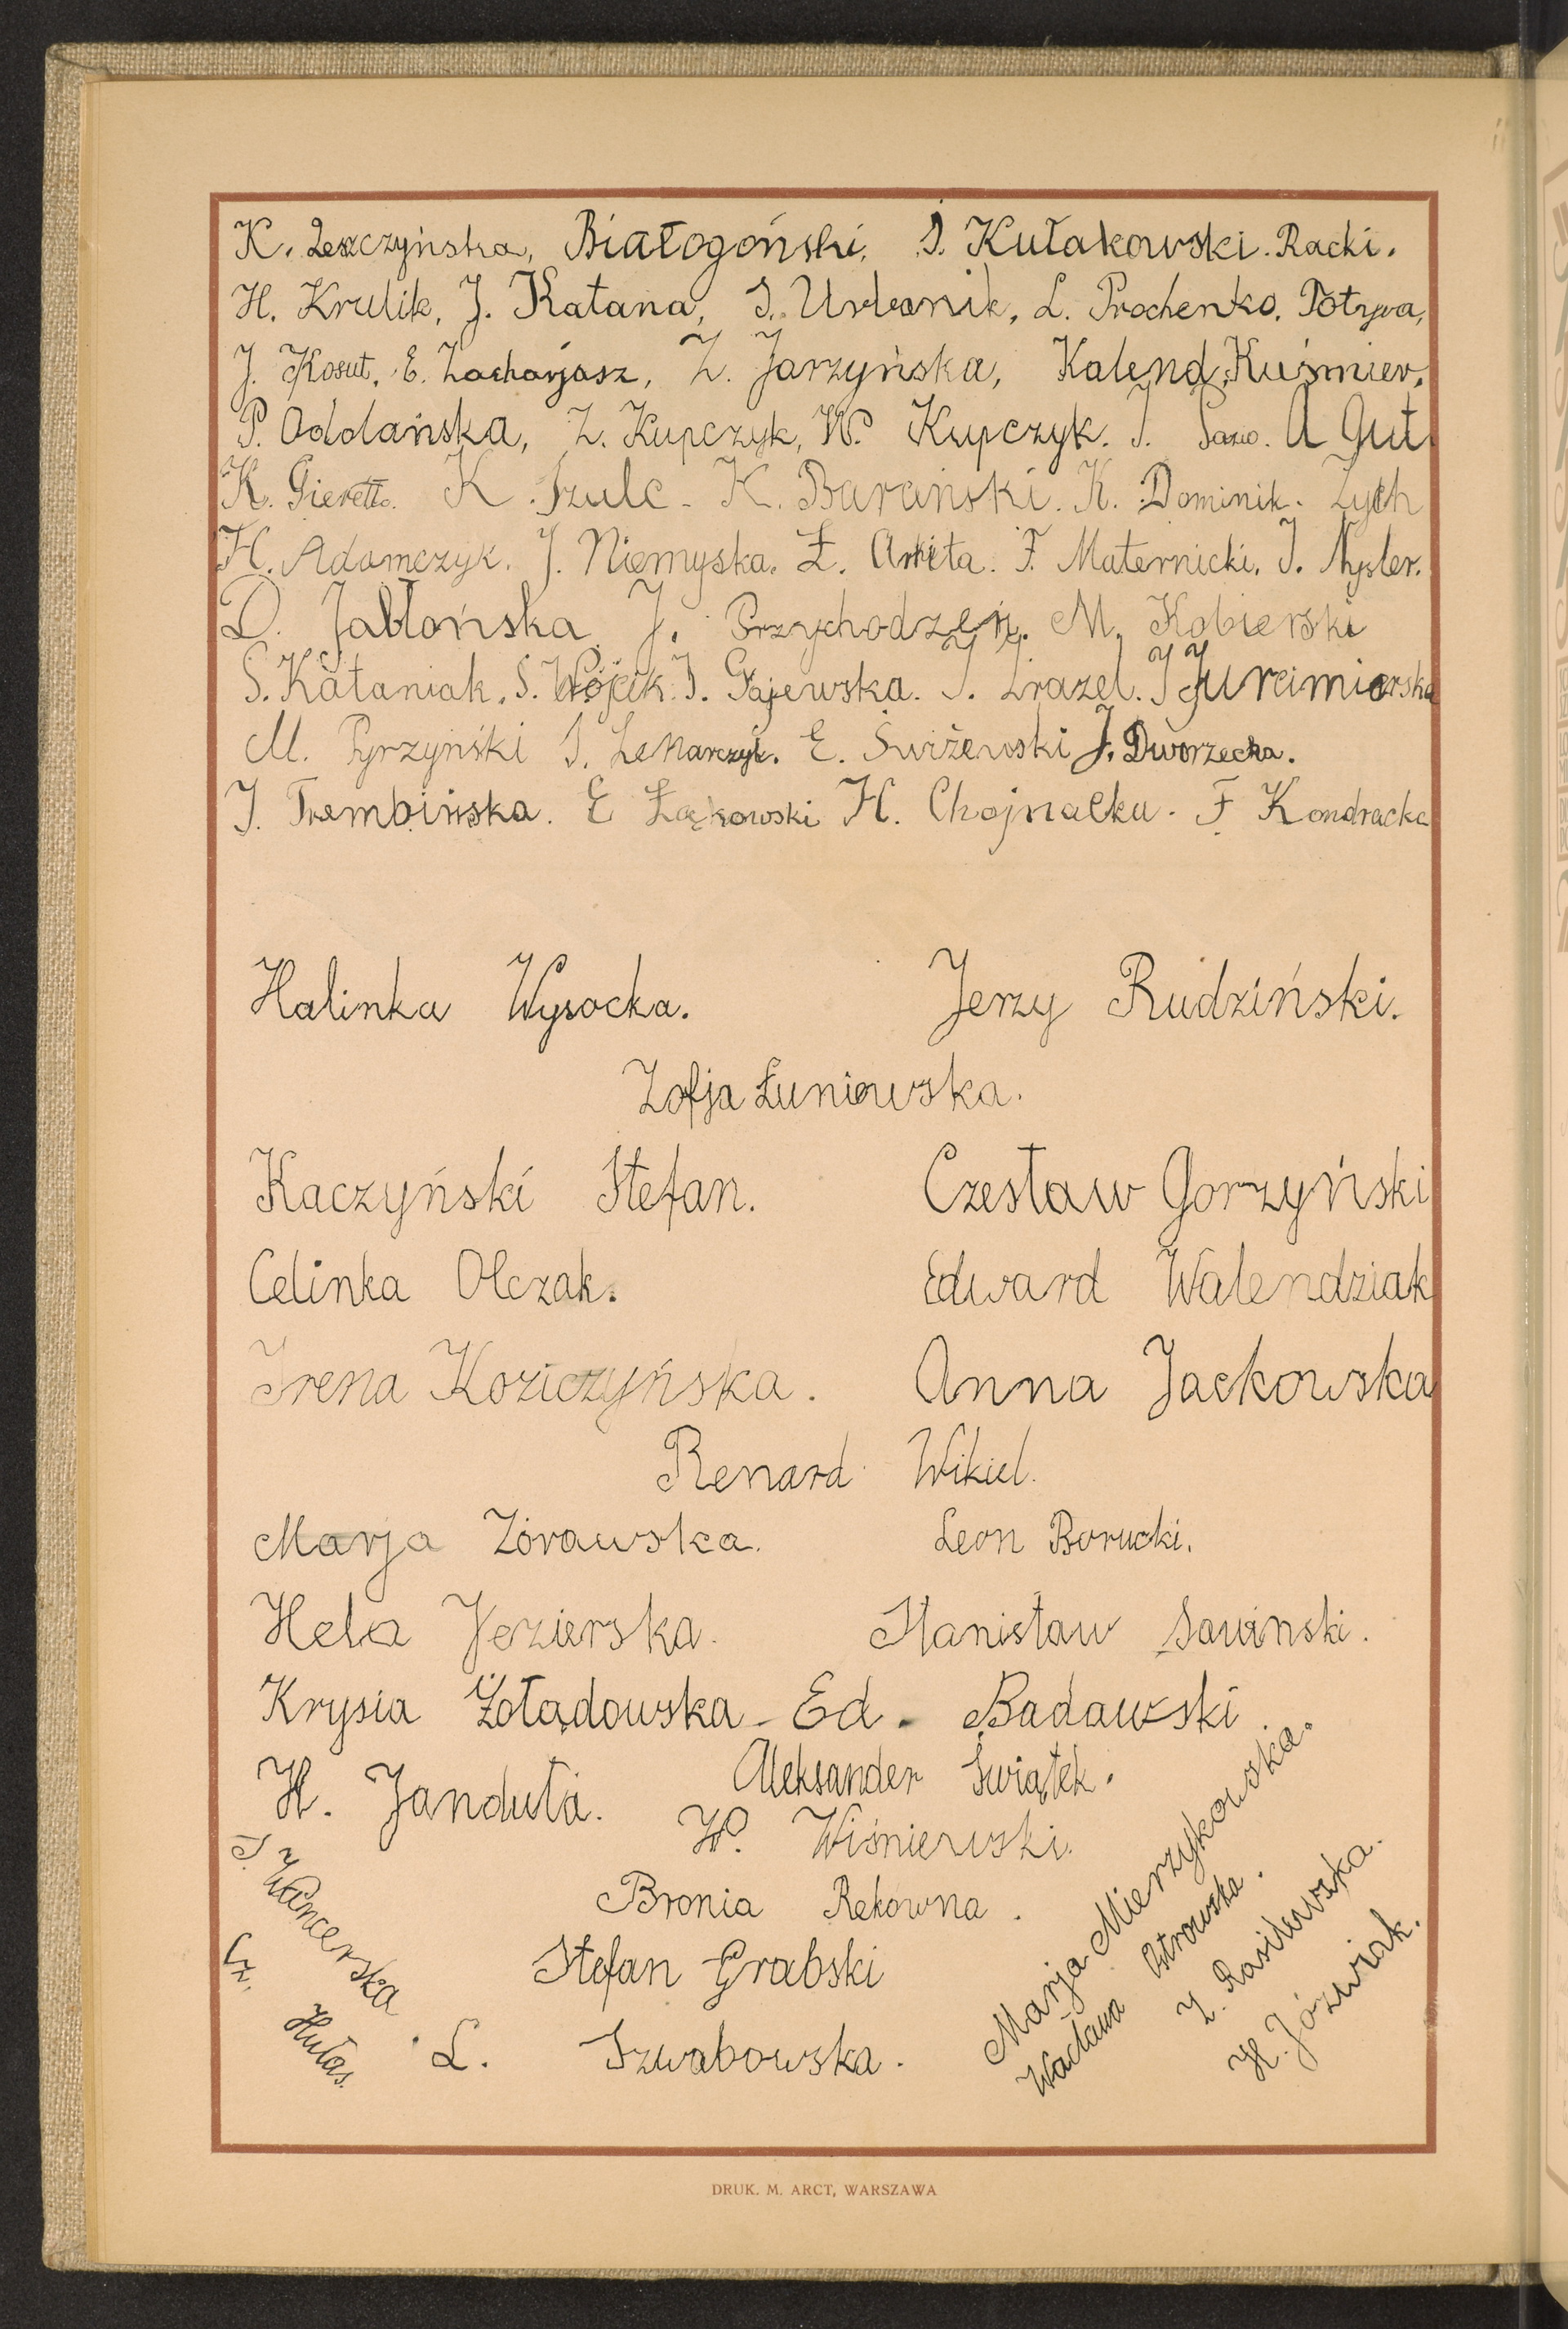 K. Leszczyńska, Białogoński, J. Kułakowski. Racki.
H. Krulik, J. Katana, J. Urbanik, L. Prochenko, Potyra,
J. Kosut, E. Zacharjasz, Z. Jarzyńska, Kalend, Kuśmier,
P. Oddańska, Z. Kupczyk, W. Kupczyk. J. A Gut.
K. K. Szulc - K. Barański. K. Dominik. Zych
H. Adamczyk. J. Niemyska. Ł. Arkita. F. Maternicki. J. Nysler.
D. Jabłońska J. Przychodzeń. M. Kobierski
S. Kataniak. S. Wójcik J. Gajewska. J. Zrazel. J Jurcimierska
M. Pyrzyński J. Lenarczyk. E. Świżewski J. Dworzecka.
J. Trembińska. E Łąkowski H. Chojnacka. F Kondracka
Halinka Wysocka. Jerzy Rudziński.
Zofja Łuniewska.
Kaczyński Stefan. Czesław Gorzyński
Celinka Olczak. Edward Walendziak
Irena Koziczyńska. Anna Jackowska
Renard Wikiel.
Marja Żórawska. Leon Borucki.
Hela Jezierska. Stanisław Sawinski.
Krysia Żołądowska - Ed. Badawski
H. Janduła. Aleksander Świątek.
W. Wiśniewski.
Bronia Rekowna.
Stefan Grabski
L. Szwabowska.
J. Wancerska
Cz. Hułas.
Marja Mierzykowska.
Wacława Ostrowska.
Z. Rasilewska.
H. Józwiak.
DRUK. M. ARCT, WARSZAWA